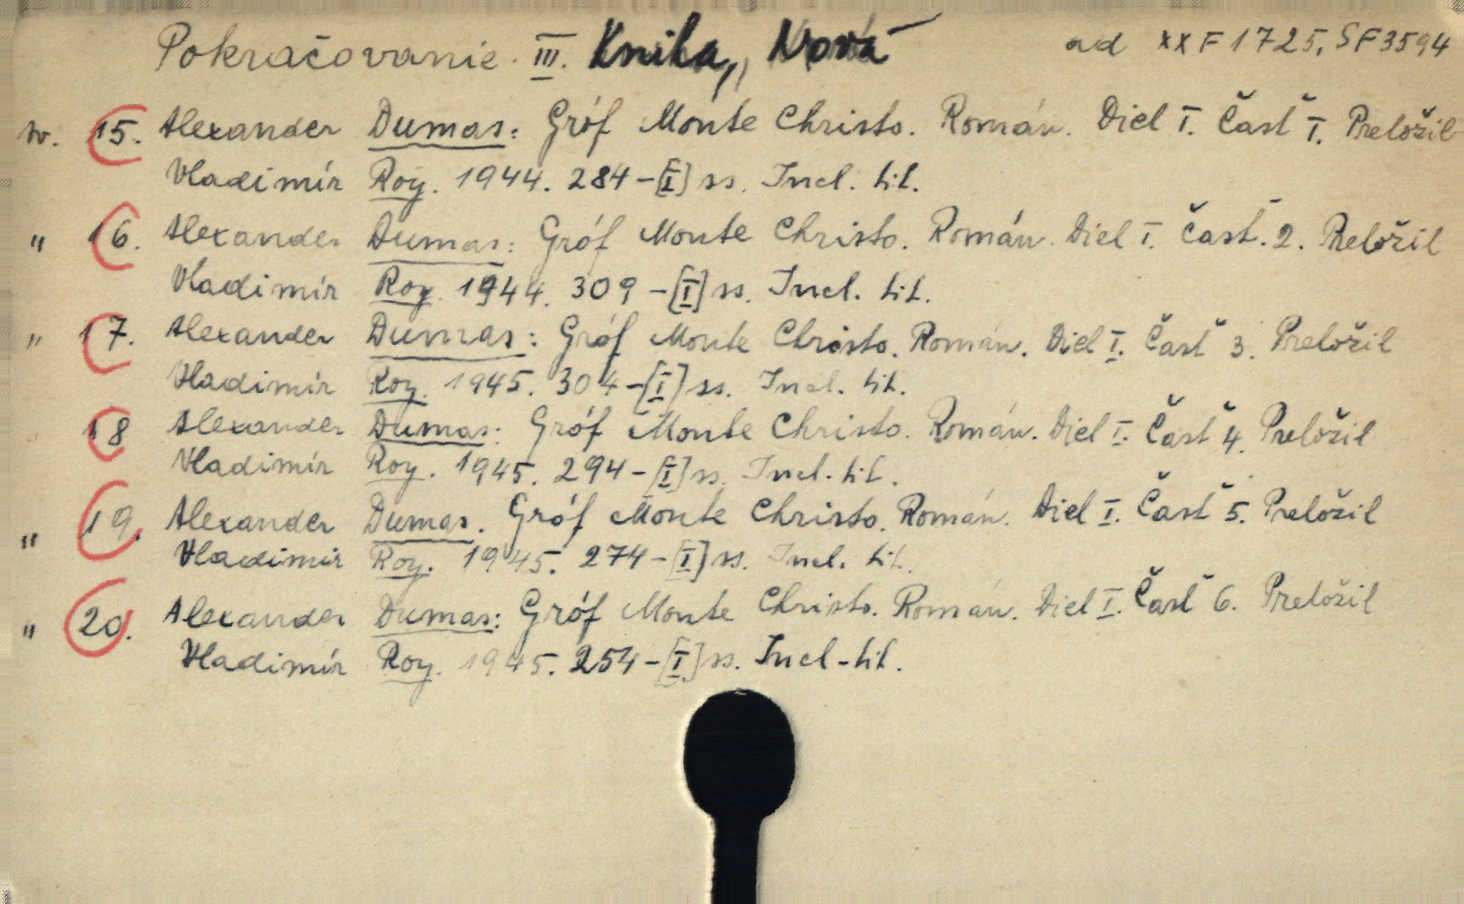 Pokračovanie III. Kniha, Nová ad XX F 1725, SF 3594
sv. 15. Alexander Dumas: Gróf Monte Christo. Román. Diel I. Časť I. Preložil
Vladimír Roy. 1944. 284-[I] ss. Incl. tit.
" 16. Alexander Dumas: Gróf Monte Christo. Román. Diel I. Časť. 2. Preložil
Vladimír Roy. 1944. 309-[I] ss. Incl. tit.
" 17. Alexander Dumas: Gróf Monte Christo. Román. Diel I. Časť 3. Preložil
Vladimír Roy. 1945. 304-[I] ss. Incl. tit.
" 18 Alexander Dumas: Gróf Monte Christo. Román. Diel I. Časť 4. Preložil
Vladimír Roy. 1945. 294-[I] ss. Incl. tit.
" 19. Alexander Dumas. Gróf Monte Christo. Román. Diel I. Časť 5. Preložil
Vladimír Roy. 1945. 274-[I] ss. Incl. tit.
" 20. Alexander Dumas: Gróf Monte Christo. Román. Diel I. Časť 6. Preložil
Vladimír Roy. 1945. 254-[I] ss. Incl-tit.